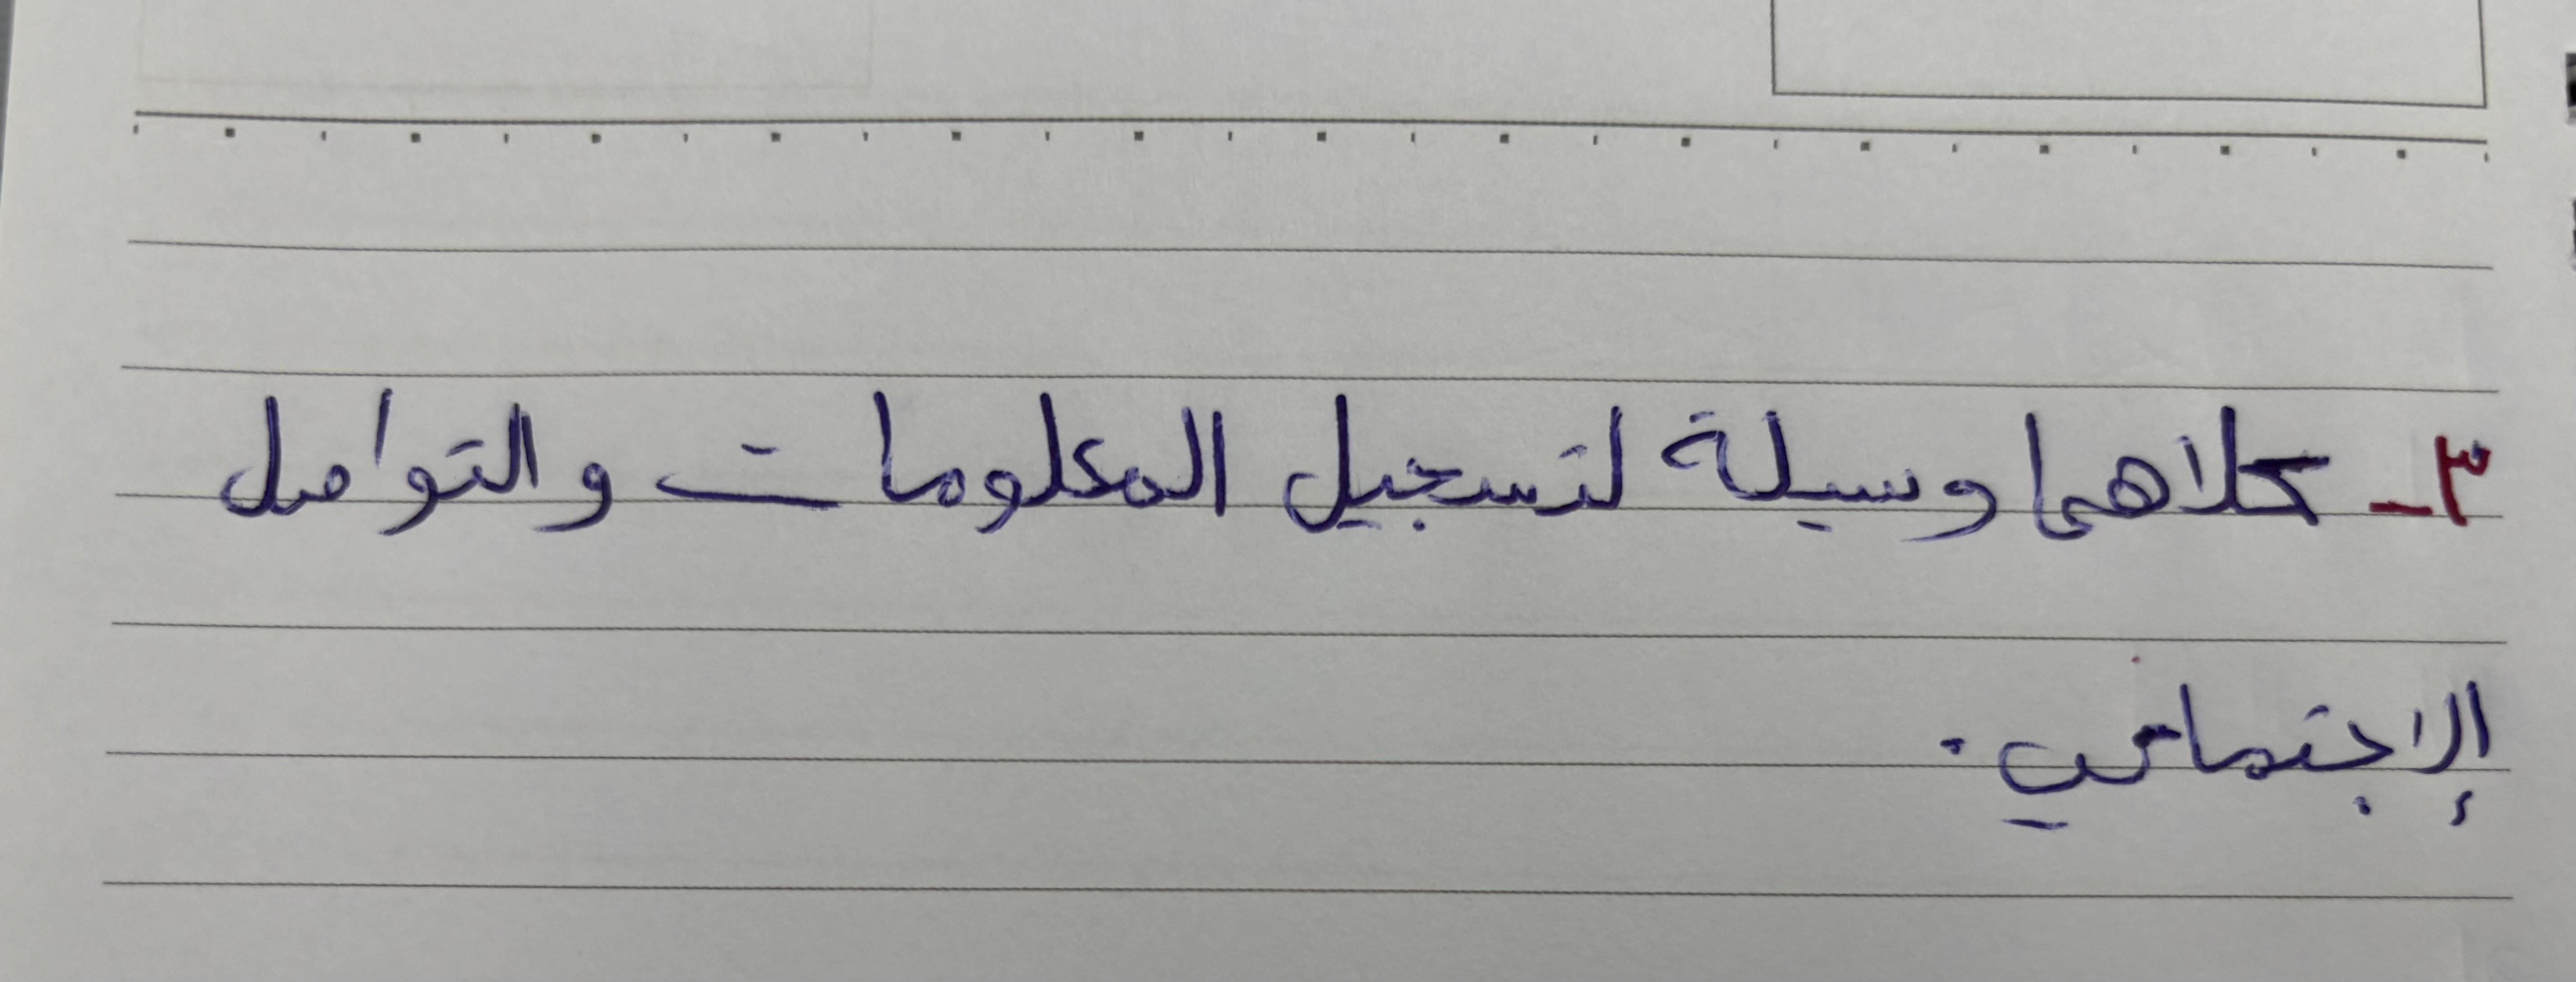 ٣- كلاهما وسيلة لتسجيل المعلومات والتواصل
الإجتماعي.